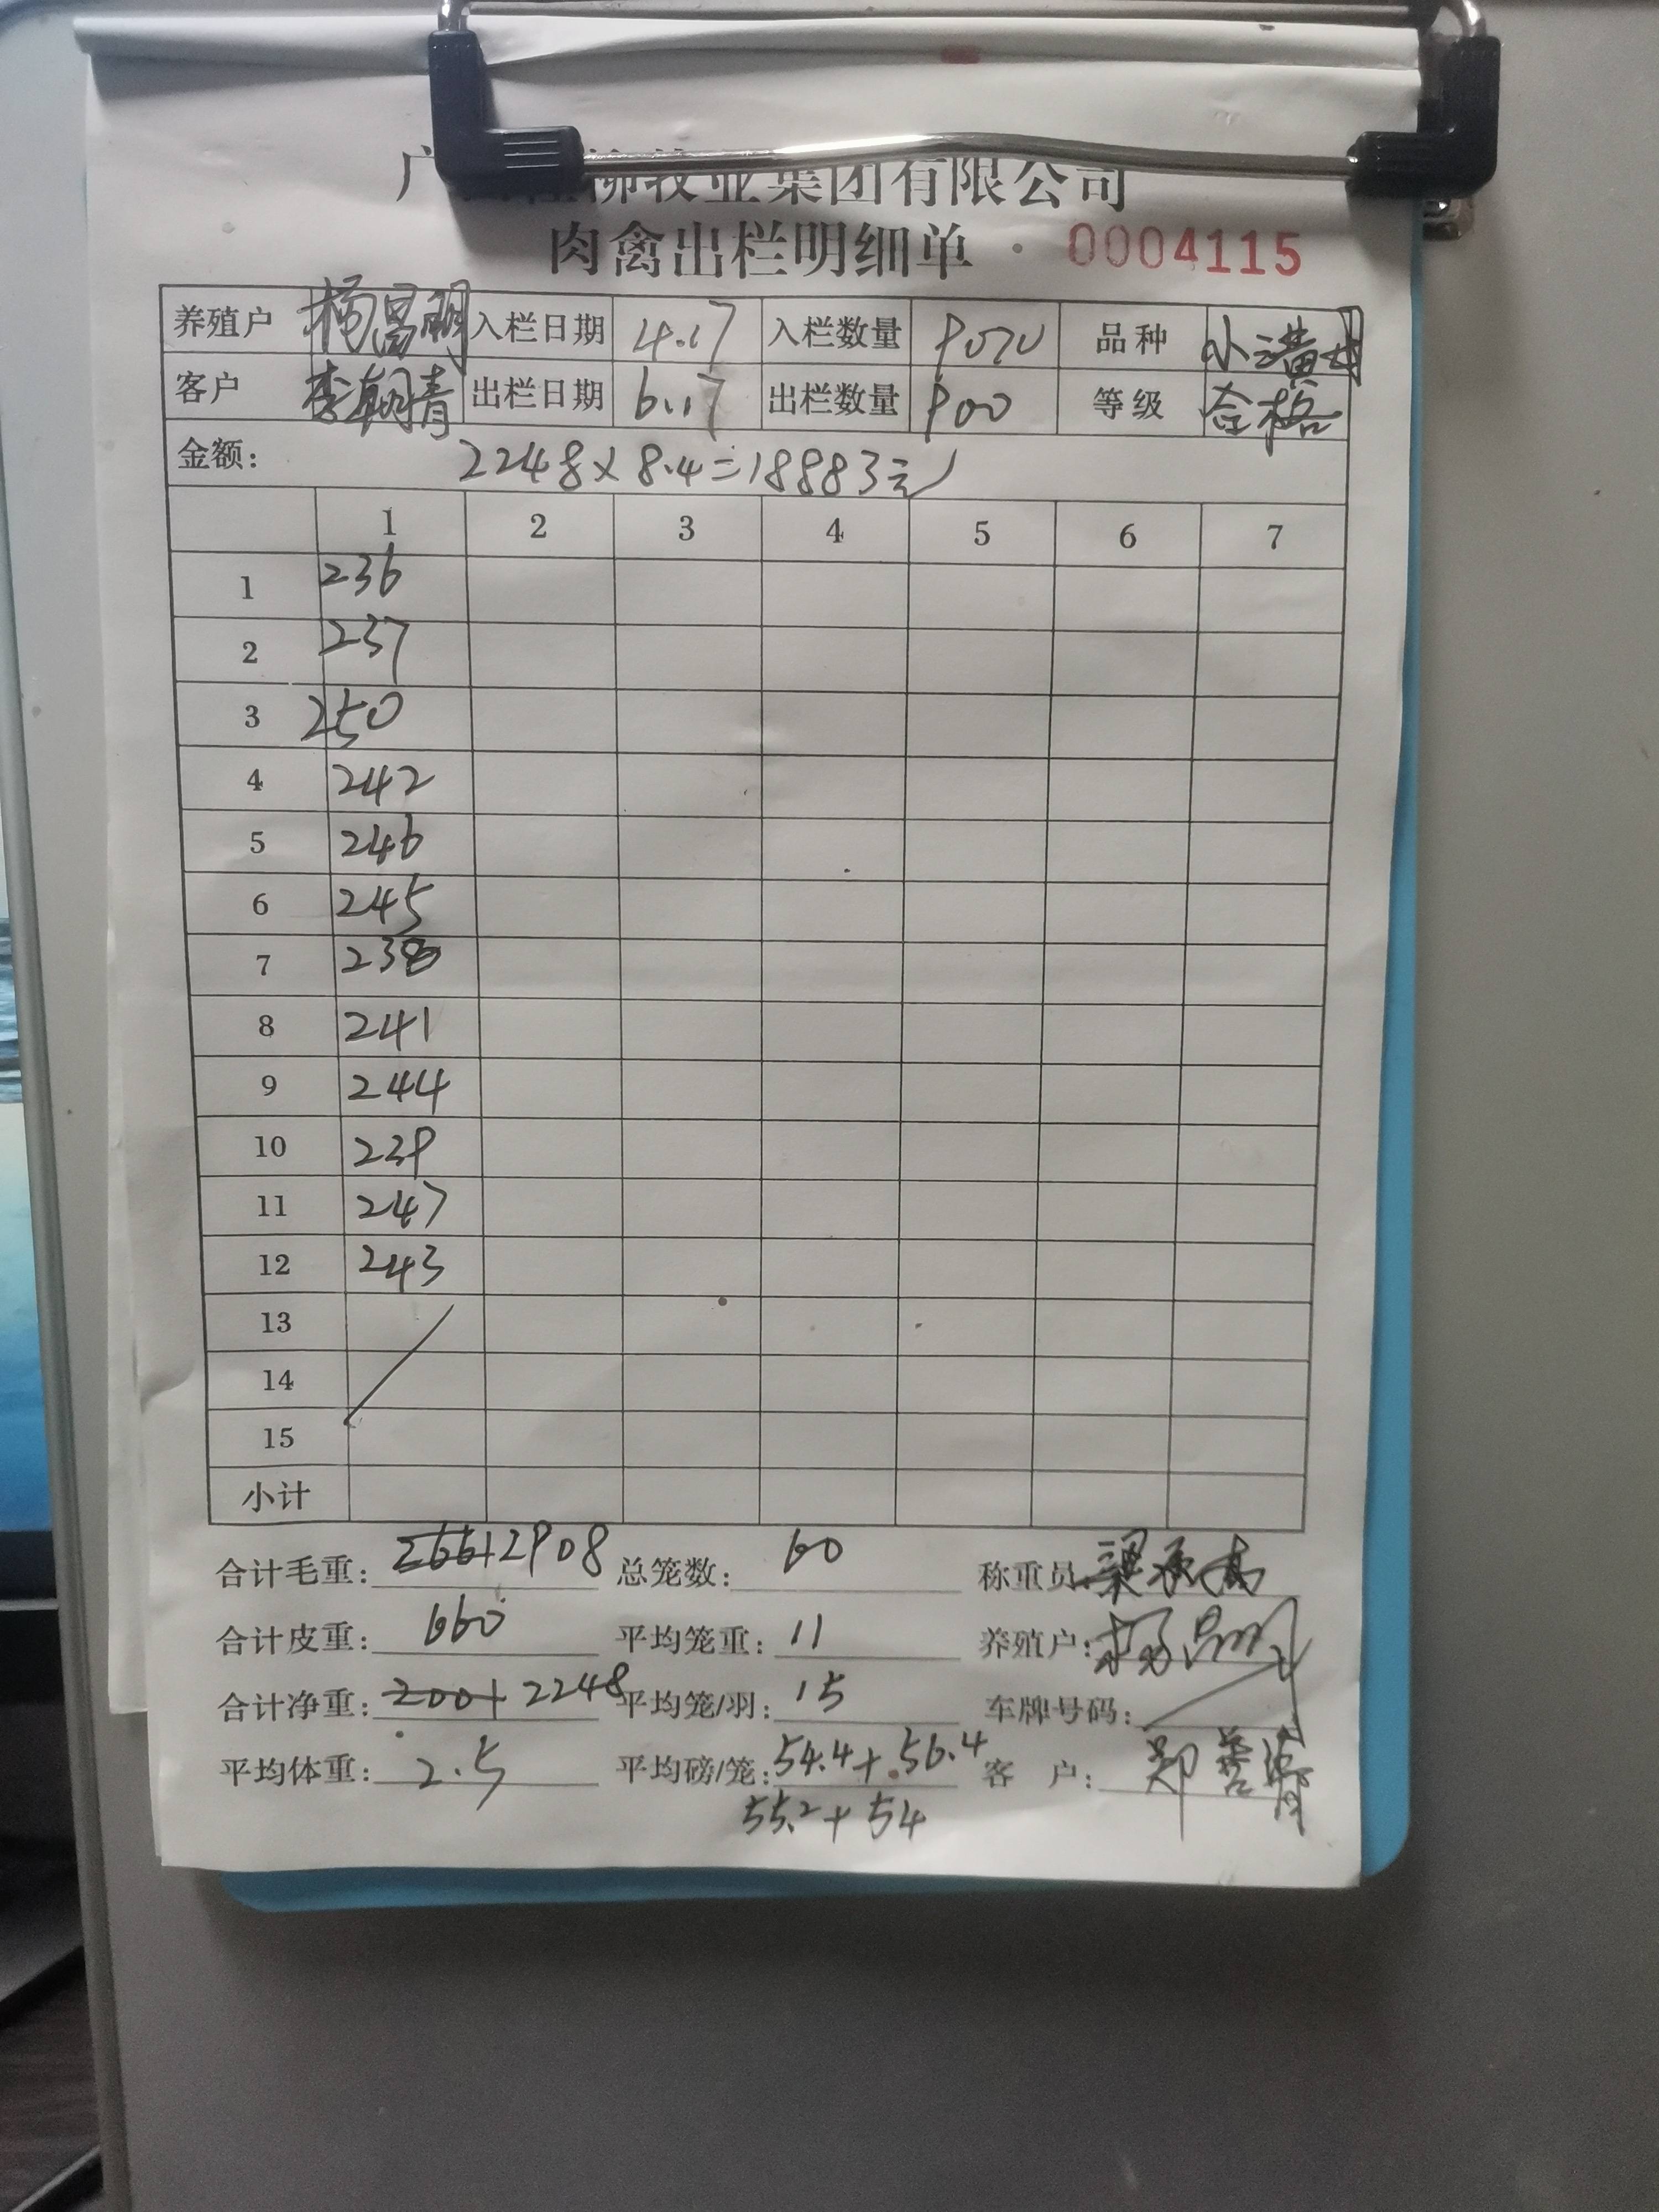 柳牧业集团有限公司
肉禽出栏明细单 0004115
养殖户 杨昌明 入栏日期 4.17 入栏数量 9070 品种
客户 李朝青 出栏日期 6.17 出栏数量 900 等级 合格
金额: 2248×8.4=18883元
1 2 3 4 5 6 7
1 236
2 237
3 250
4 242
5 246
6 245
7 238
8 241
9 244
10 239
11 247
12 243
13
14
15
小计
合计毛重: 2661 2908 总笼数: 60 称重员:
合计皮重: 660 平均笼重: 11 养殖户: 杨昌明
合计净重: 2001 2248 平均笼/羽: 15 车牌号码:
平均体重: 2.5 平均磅/笼: 54.4+56.4 客户:
55.2+54